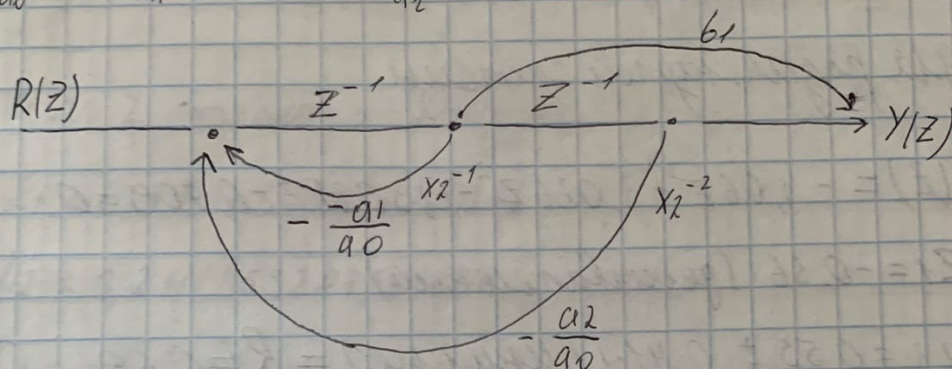 b1
R(Z) Z⁻¹ Z⁻¹ Y(Z)
xz⁻¹ xz⁻²
- -a1/a0
- a2/a0